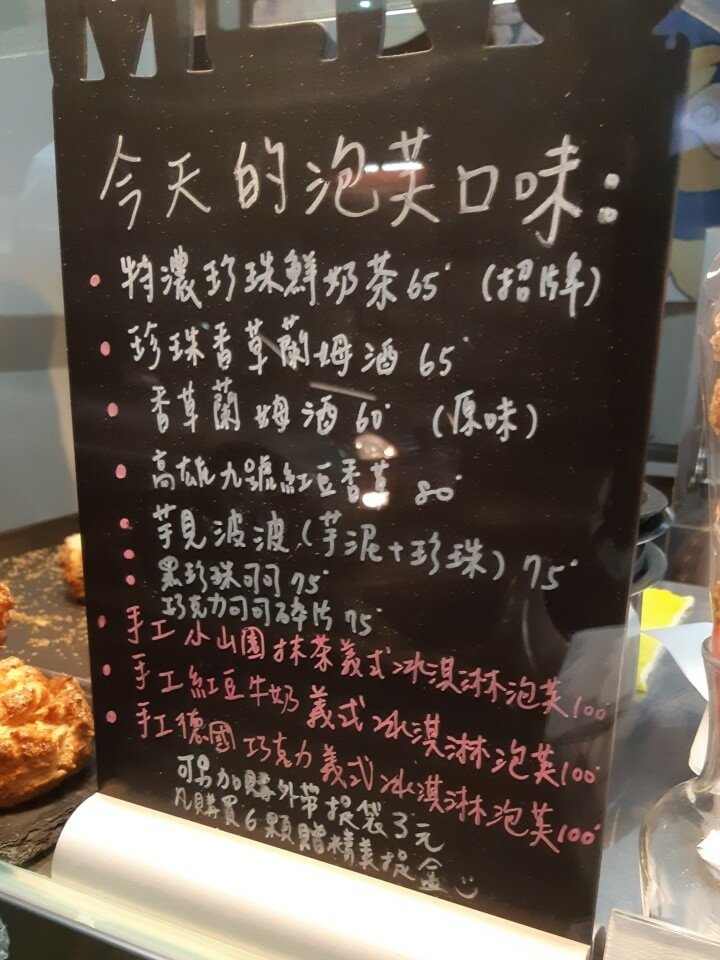 MENU
今天的泡芙口味:
• 特濃珍珠鮮奶茶 65 (招牌)
• 珍珠香草蘭姆酒 65
• 香草蘭姆酒 60 (原味)
• 高雄九號紅豆香草 80
• 芋見波波(芋泥+珍珠) 75
• 黑珍珠可可 75
• 巧克力可可碎片 75
• 手工小山園抹茶義式冰淇淋泡芙 100
• 手工紅豆牛奶義式冰淇淋泡芙 100
• 手工德國巧克力義式冰淇淋泡芙 100
可另加購外帶提袋3元
凡購買6顆贈精美提盒